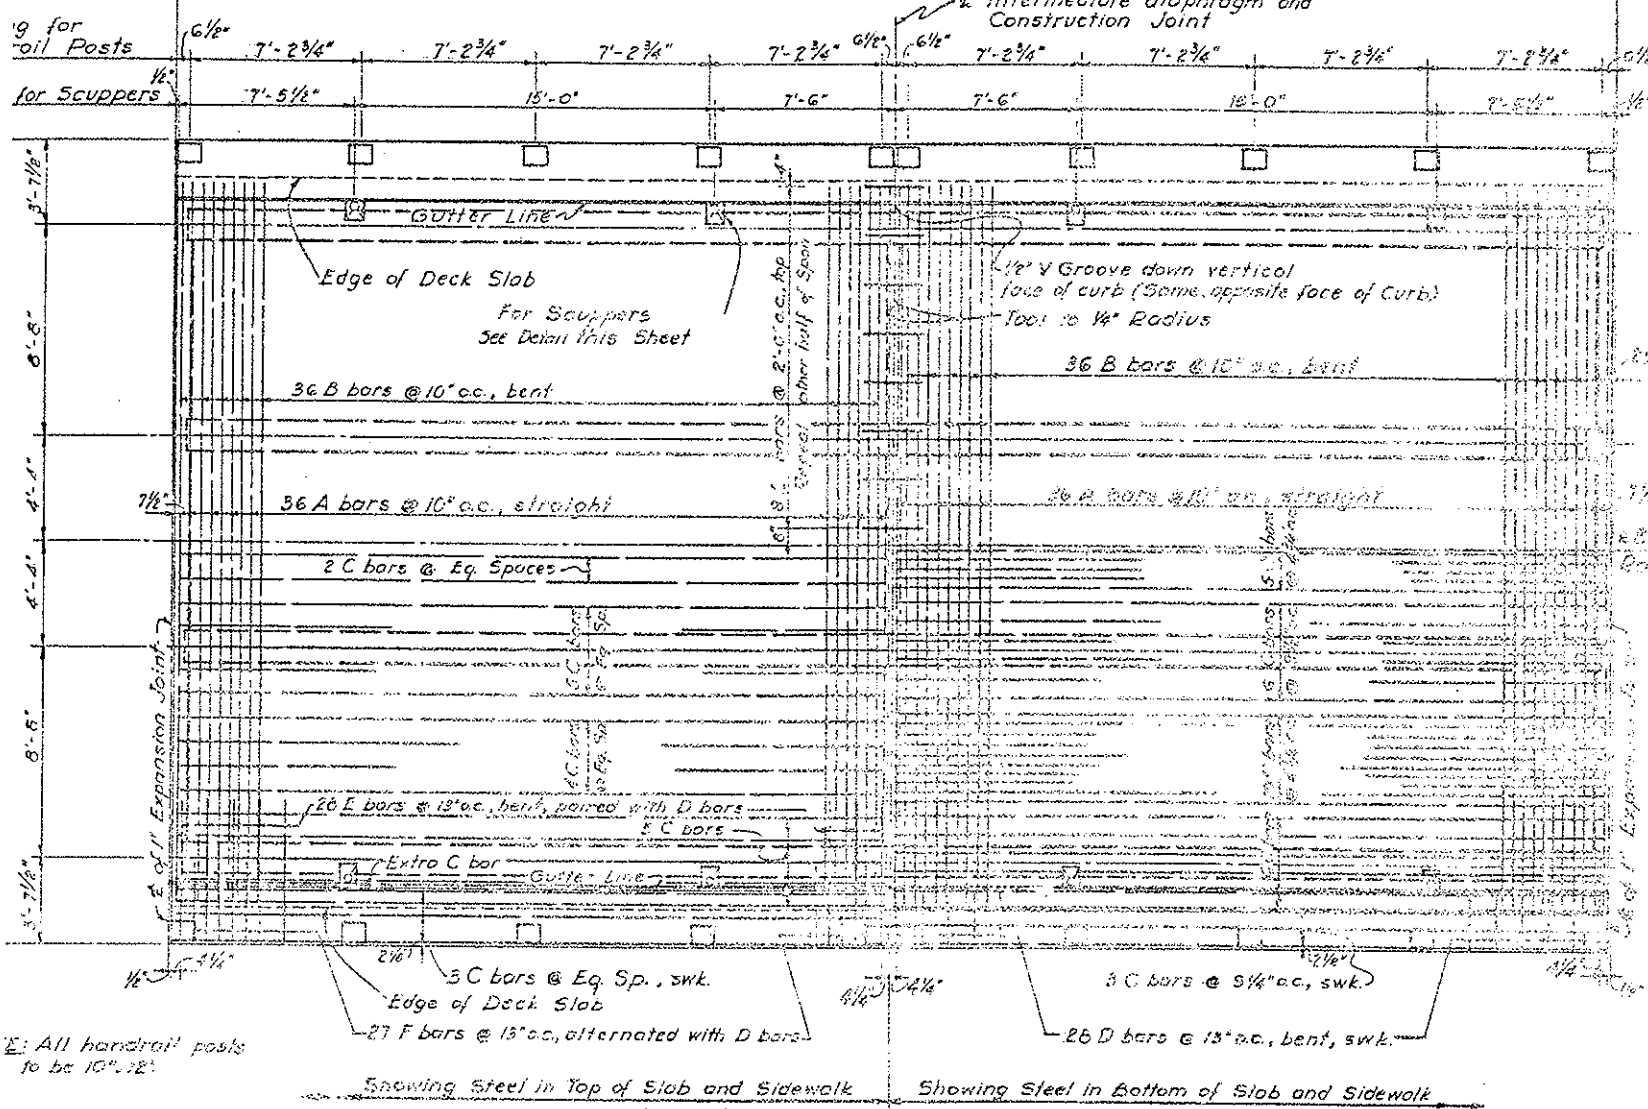 Intermediate Diaphragm and
Construction Joint
g for
oil Posts
6½"
7'-2¾"
7'-2¾"
7'-2¾"
7'-2¾"
6½"
6½"
7'-2¾"
7'-2¾"
7'-2¾"
7'-2¾"
½"
for Scuppers
7'-5½"
15'-0"
7'-6"
7'-6"
15'-0"
7'-5½"
½"
3'-7½"
Gutter Line
Edge of Deck Slab
For Scuppers
See Detail This Sheet
½" V Groove down vertical
face of curb (Same opposite face of Curb)
Tool to ¼" Radius
8'-8"
36 B bars @ 10" o.c., bent
36 B bars @ 10" o.c., bent
bars @ 2'-0" o.c., top
other half of Span
4'-4"
7½"
36 A bars @ 10" o.c., straight
36 A bars @ 10" o.c., straight
2 C bars @ Eq. Spaces
4'-4"
C bars
Eq. Sp.
8'-8"
4 C bars
Eq. Sp.
℄ of 1" Expansion Joint
26 E bars @ 13" o.c., bent, paired with D bars
5 C bars
Extra C bar
Gutter Line
3'-7½"
½"
4¼"
3 C bars @ Eq. Sp., swk.
Edge of Deck Slab
27 F bars @ 13" o.c., alternated with D bars
4¼"
4¼"
3 C bars @ 5¼" o.c., swk.
4¼"
26 D bars @ 13" o.c., bent, swk.
E: All handrail posts
to be 10"x12"
Showing Steel in Top of Slab and Sidewalk
Showing Steel in Bottom of Slab and Sidewalk